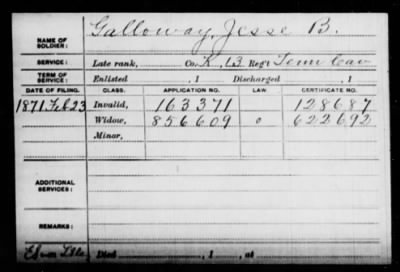 NAME OF SOLDIER: Galloway, Jesse B.
SERVICE: Late rank, Co. K, 13 Reg't Tenn Cav
TERM OF SERVICE: Enlisted , 1 Discharged , 1
DATE OF FILING. CLASS. APPLICATION NO. LAW. CERTIFICATE NO.
1871 Feb 23 Invalid, 163371 128687
Widow, 856609 o 622692
Minor,
ADDITIONAL SERVICES:
REMARKS:
Died , 1 , at